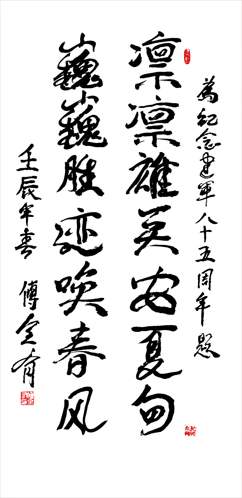 为纪念建军八十五周年题
凛凛雄关安夏甸
巍巍胜迹唤春风
壬辰年春 傅全有